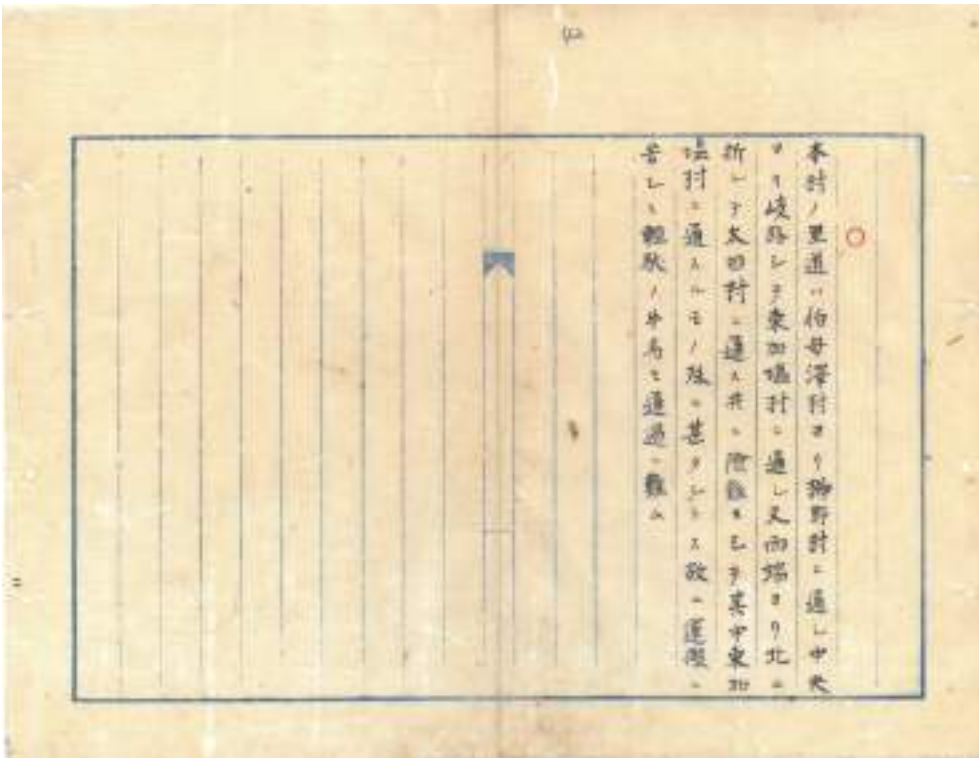 42
○
本村ノ里道ハ伯母澤村ヨリ 野村ニ通シ中央
ヨリ岐路シテ東加塩村ニ通シ又西端ヨリ北ニ
折レテ太田村ニ通ス共ニ險 ニシテ其中東加
塩村ニ通スルモノ殊ニ甚タシトス故ニ運 ニ
苦シミ軽 ノ牛馬モ通過ニ難ム